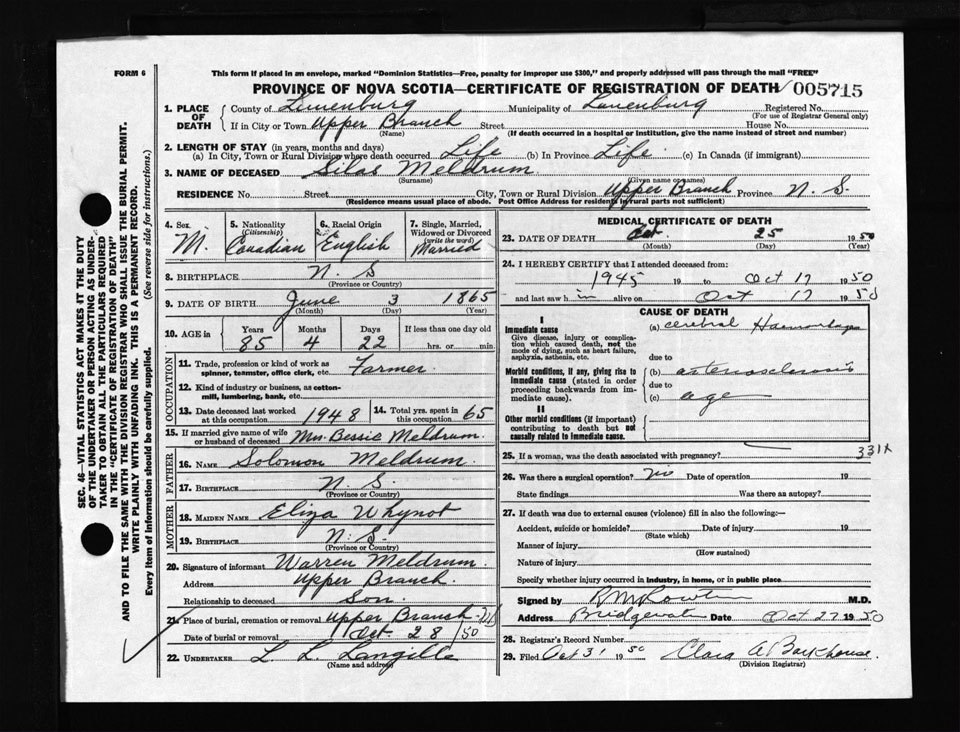 FORM 6
This form if placed in an envelope, marked "Dominion Statistics—Free, penalty for improper use $300," and properly addressed will pass through the mail "FREE"
PROVINCE OF NOVA SCOTIA—CERTIFICATE OF REGISTRATION OF DEATH 005715
1. PLACE OF DEATH
County of Lunenburg Municipality of Lunenburg Registered No.
(For use of Registrar General only)
If in City or Town Upper Branch Street House No.
(Name) (If death occurred in a hospital or institution, give the name instead of street and number)
2. LENGTH OF STAY (in years, months and days)
(a) In City, Town or Rural Division where death occurred Life (b) In Province Life (c) In Canada (if immigrant)
3. NAME OF DECEASED Silas Meldrum
(Surname) (Given name or names)
RESIDENCE No. Street City, Town or Rural Division Upper Branch Province N. S.
(Residence means usual place of abode. Post Office Address for residents in rural parts not sufficient)
4. Sex M.
5. Nationality (Citizenship) Canadian
6. Racial Origin English
7. Single, Married, Widowed or Divorced (write the word) Married
8. BIRTHPLACE N. S
(Province or Country)
9. DATE OF BIRTH June 3 1865
(Month) (Day) (Year)
10. AGE in Years 85 Months 4 Days 22 If less than one day old hrs. or min.
OCCUPATION
11. Trade, profession or kind of work as spinner, teamster, office clerk, etc. Farmer
12. Kind of industry or business, as cotton-mill, lumbering, bank, etc.
13. Date deceased last worked at this occupation 1948
14. Total yrs. spent in this occupation 65
15. If married give name of wife or husband of deceased Mrs. Bessie Meldrum.
FATHER
16. NAME Solomon Meldrum.
17. BIRTHPLACE N. S.
(Province or Country)
MOTHER
18. MAIDEN NAME Eliza Whynot
19. BIRTHPLACE N. S.
(Province or Country)
20. Signature of informant Warren Meldrum.
Address Upper Branch.
Relationship to deceased Son.
21. Place of burial, cremation or removal Upper Branch
Date of burial or removal Oct 28/50
22. UNDERTAKER L. L. Langille
(Name and address)
MEDICAL CERTIFICATE OF DEATH
23. DATE OF DEATH Oct. 25 1950
(Month) (Day) (Year)
24. I HEREBY CERTIFY that I attended deceased from:
1945 19 to Oct 17 1950
and last saw him alive on Oct 17 1950
CAUSE OF DEATH
I
Immediate cause
Give disease, injury or complication which caused death, not the mode of dying, such as heart failure, asphyxia, asthenia, etc.
(a) cerebral Haemorrhage
due to
Morbid conditions, if any, giving rise to immediate cause (stated in order proceeding backwards from immediate cause).
(b) arteriosclerosis
due to
(c) age
II
Other morbid conditions (if important) contributing to death but not causally related to immediate cause.
25. If a woman, was the death associated with pregnancy? 331X
26. Was there a surgical operation? no Date of operation 19
State findings Was there an autopsy?
27. If death was due to external causes (violence) fill in also the following:—
Accident, suicide or homicide? Date of injury 19
(State which)
Manner of injury
(How sustained)
Nature of injury
Specify whether injury occurred in industry, in home, or in public place
Signed by M.D.
Address Bridgewater Date Oct 27 1950
28. Registrar's Record Number
29. Filed Oct 31 1950 Clara A Barkhouse.
(Division Registrar)
SEC. 46—VITAL STATISTICS ACT MAKES IT THE DUTY
OF THE UNDERTAKER OR PERSON ACTING AS UNDER-
TAKER TO OBTAIN ALL THE PARTICULARS REQUIRED
IN THE "CERTIFICATE OF REGISTRATION OF DEATH"
AND TO FILE THE SAME WITH THE DIVISION REGISTRAR WHO SHALL ISSUE THE BURIAL PERMIT.
WRITE PLAINLY WITH UNFADING INK. THIS IS A PERMANENT RECORD.
Every item of information should be carefully supplied. (See reverse side for instructions.)